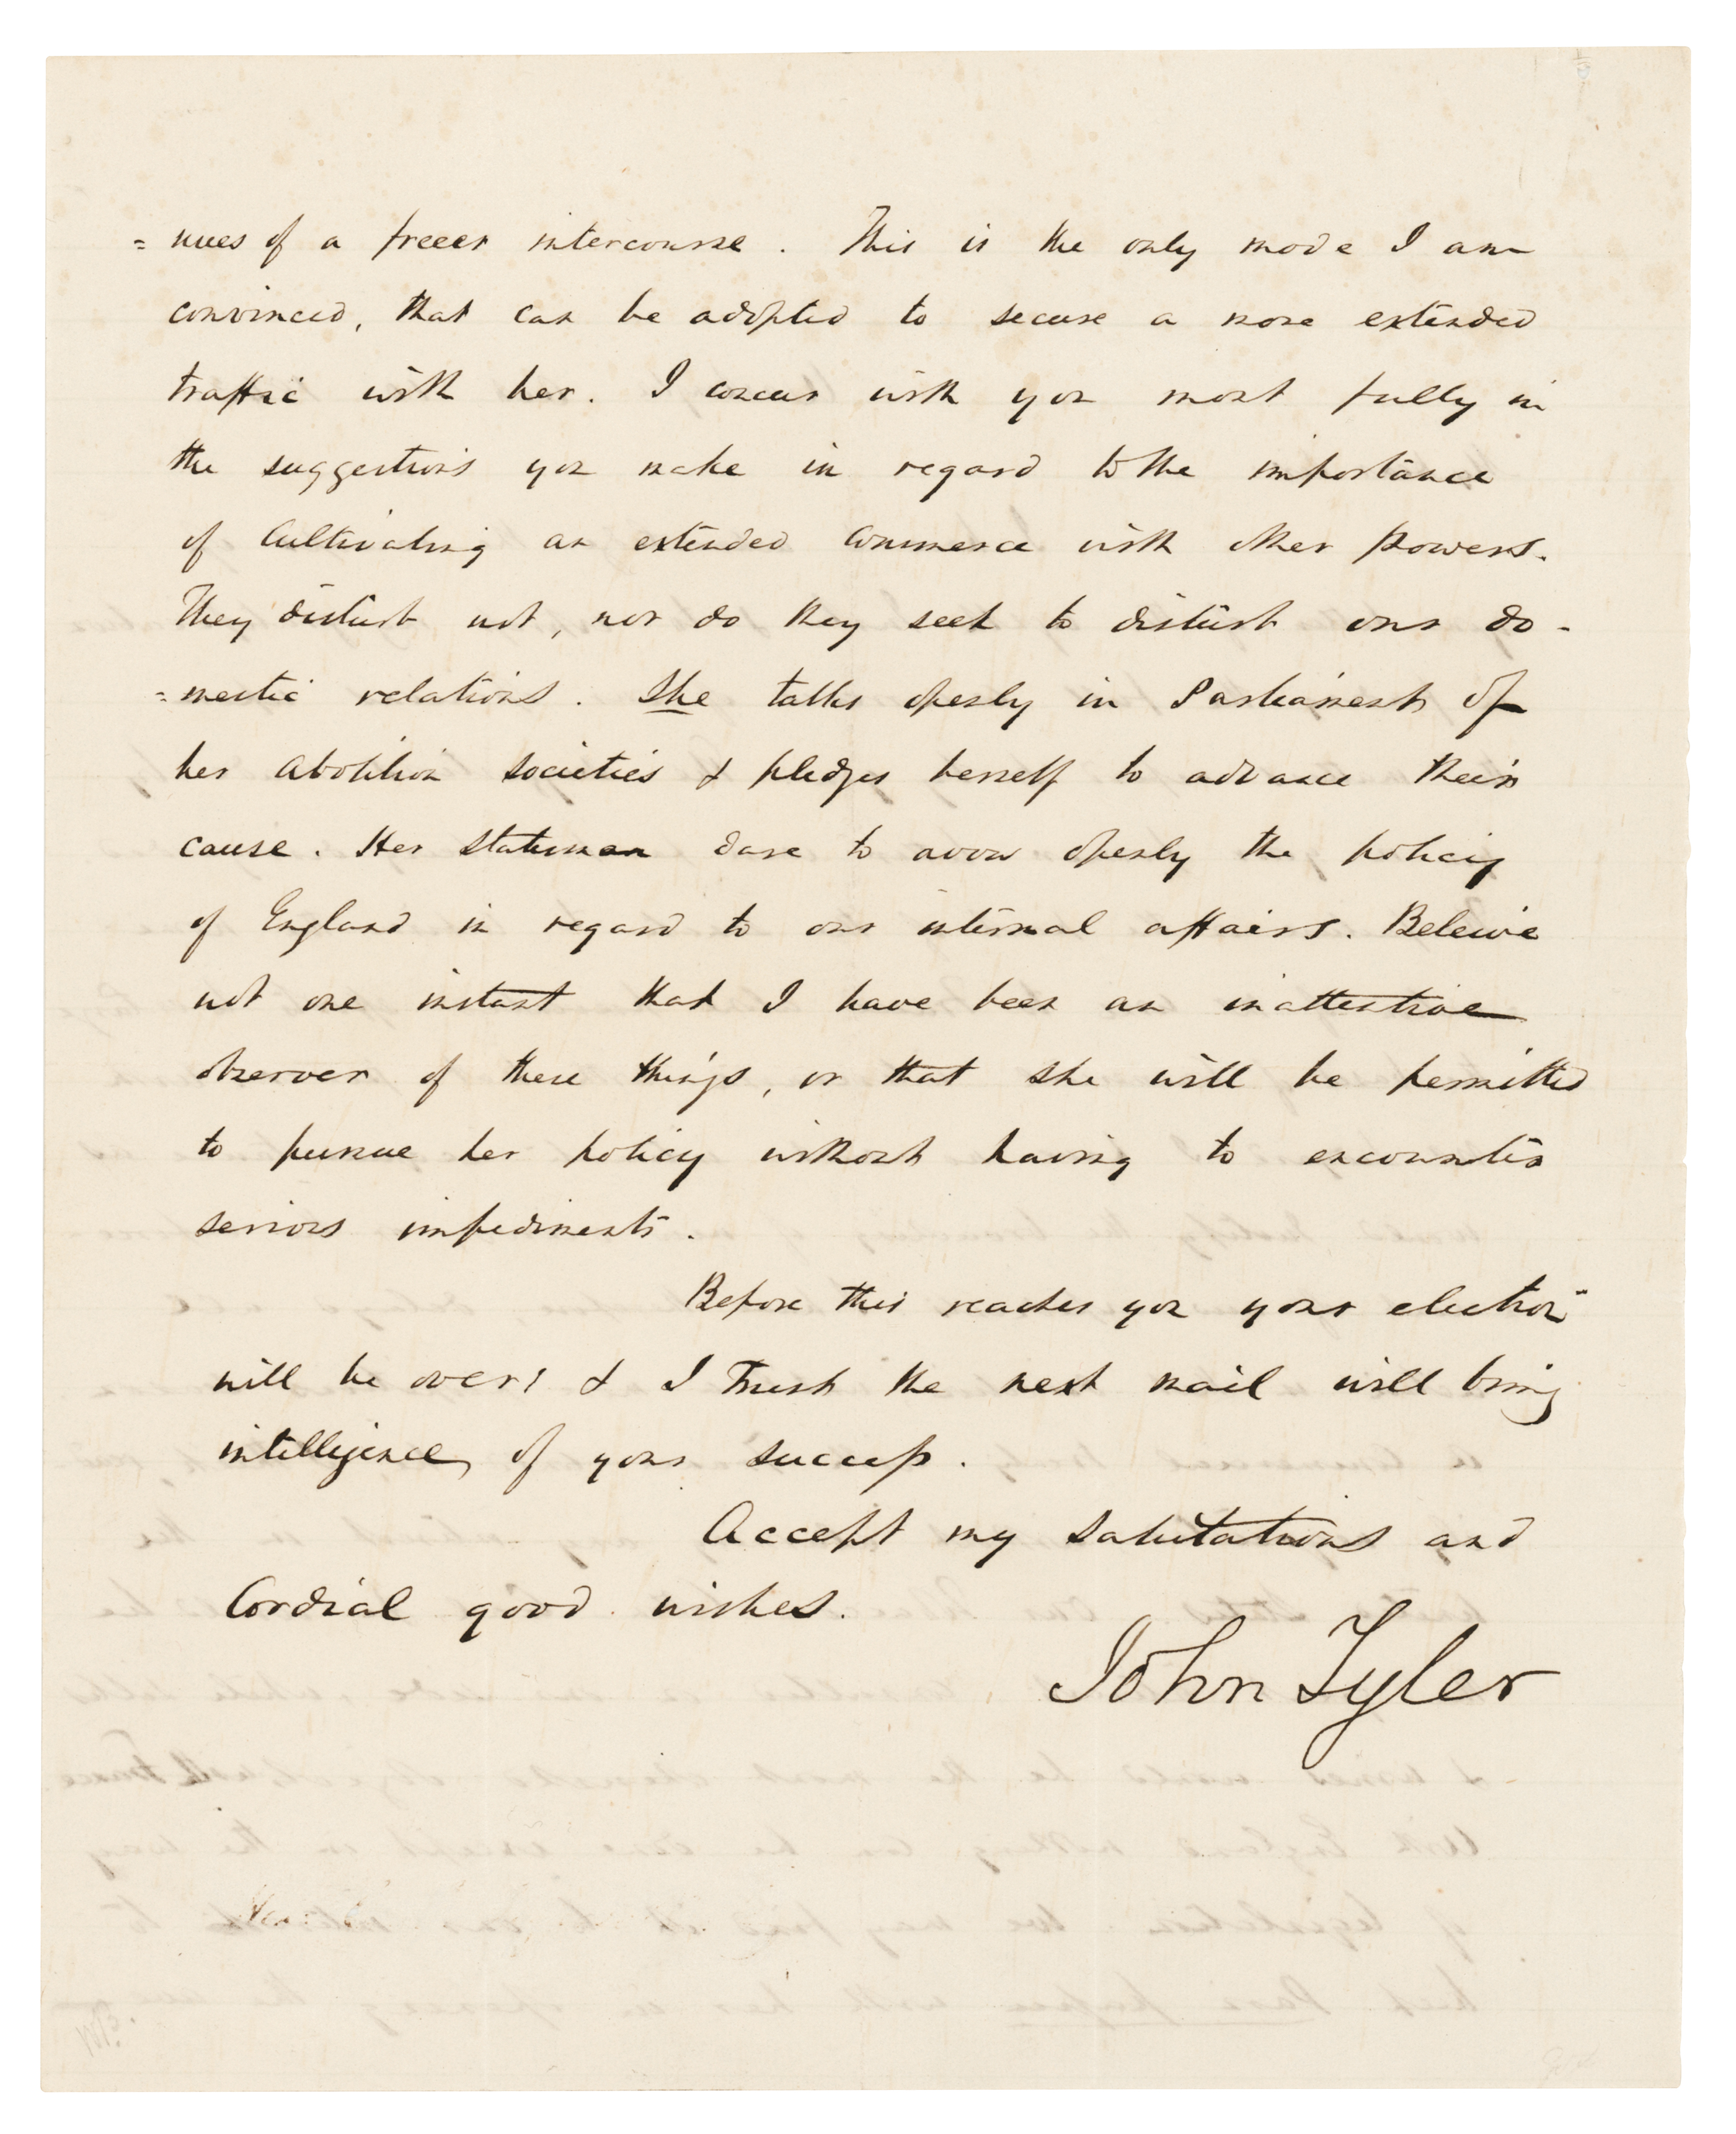 = nues of a freeer intercourse. This is the only mode I am
convinced, that can be adopted to secure a more extended
traffic with her. I concur with you most fully in
the suggestions you make in regard to the importance
of cultivating an extended commerce with other powers.
They disturb not, nor do they seek to disturb our do-
=mestic relations. She talks openly in Parliament of
her abolition societies & pledges herself to advance their
cause. Her statesmen dare to avow openly the policy
of England in regard to our internal affairs. Beleive
not one instant that I have been an inattentive
observer of these things, or that she will be permitted
to pursue her policy without having to encounter
serious impediments.
Before this reaches you your election
will be over! & I trust the next mail will bring
intelligence, of your success.
Accept my salutations and
Cordial good wishes.
John Tyler